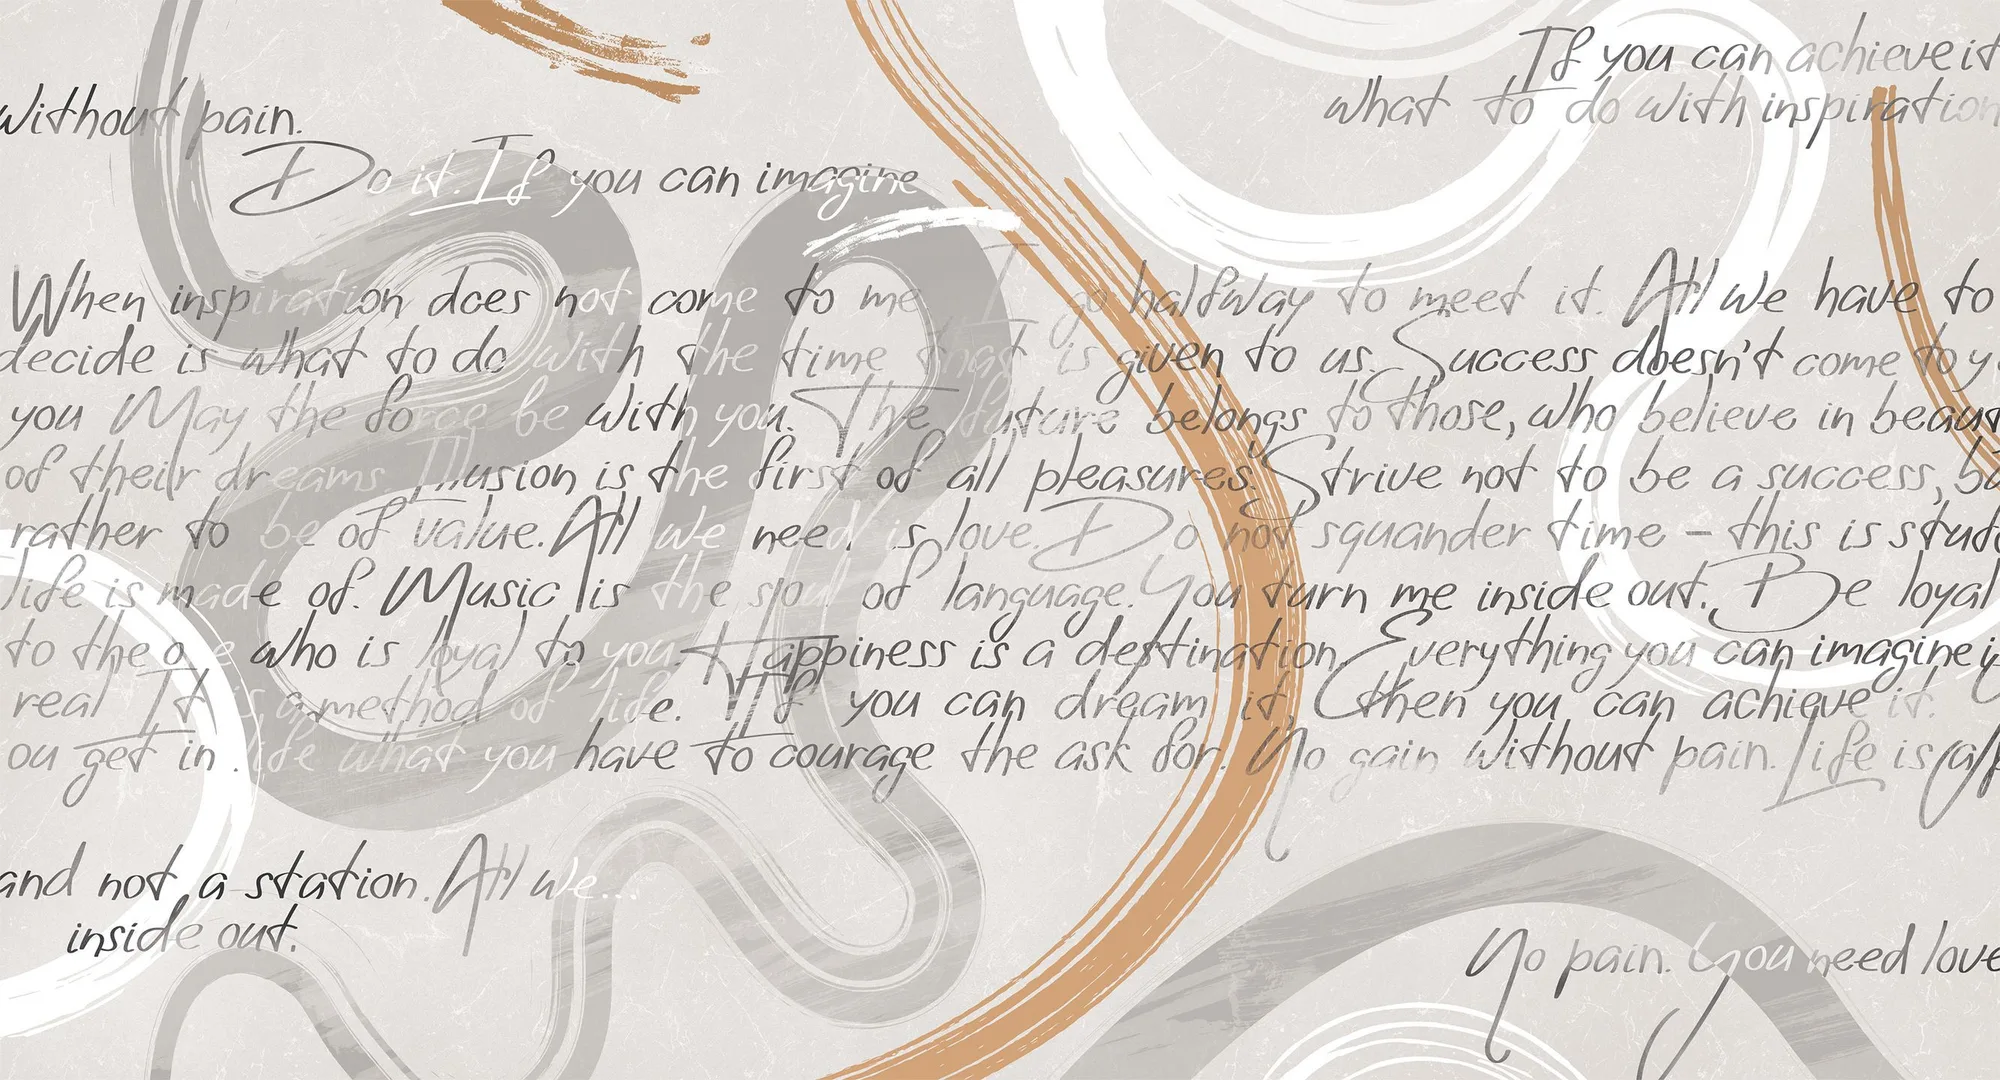 If you can achieve it
what to do with inspiration
without pain.
Do it. If you can imagine
When inspiration does not come to me I go halfway to meet it. All we have to
decide is what to do with the time that is given to us. Success doesn't come to y
you May the force be with you. The future belongs to those, who believe in beaut
of their dreams Illusion is the first of all pleasures. Strive not to be a success, bu
rather to be of value. All we need is love. Do not squander time – this is stud
life is made of. Music is the soul of language. You turn me inside out. Be loyal
to the one who is loyal to you. Happiness is a destination. Everything you can imagine i
real It is a method of life. If you can dream it, then you can achieve it.
ou get in life what you have to courage the ask for. No gain without pain. Life is
and not a station. All we...
inside out.
No pain. You need love